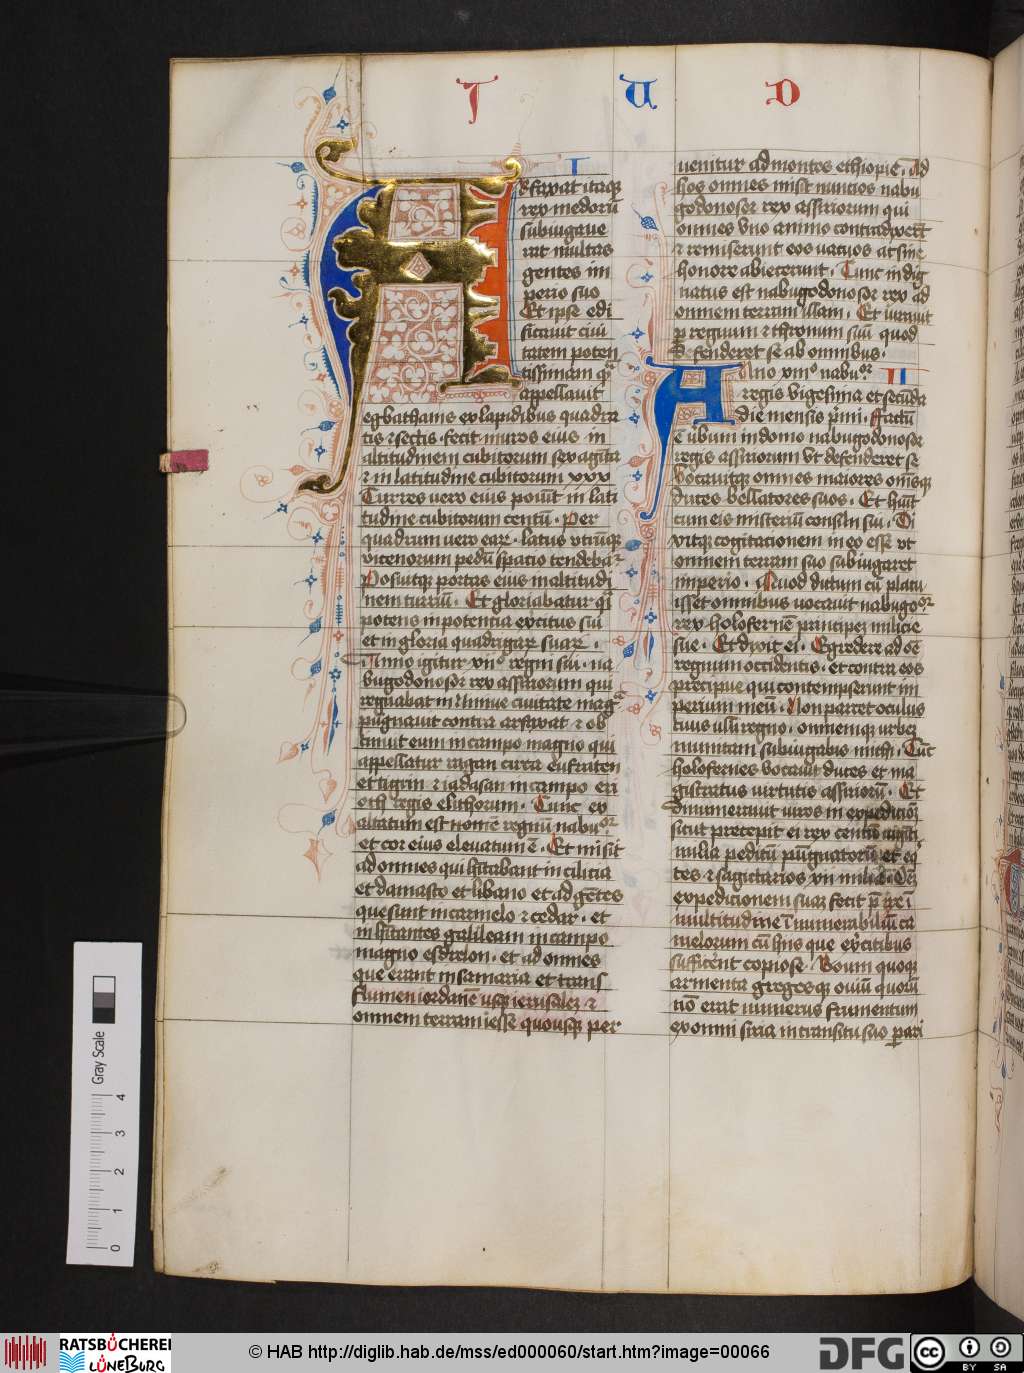 I U D
I
Arfaxat itaq
rex medorū
subiugaue
rat multas
gentes im
perio suo
Et ipse edi
ficauit ciui
tatem poten
tissimam q
appellauit
egbathanis ex lapidibus quadra
tis et sectis · fecit muros eius in
altitudinem cubitorum sexaginta
et in latitudine cubitorum xxx
Turres uero eius posuit in lati
tudine cubitorum centū · Per
quadrum uero ear · latus utriusq
vicenorum pedū spacio tendebat
Posuitq portas eius in altitudi
nem turriū · Et gloriabatur q̄i
potens in potentia exercitus sui
et in gloria quadrigar suar ·
Anno igitur xii° regni sui · na
bugodonosor rex assiriorum qui
regnabat in Niniue ciuitate mag
pugnauit contra arfaxat et ob
tinuit eum in campo magno qui
appellatur ragan circa eufraten
et tigrin et iadasan in campo eri
oth regis elithorum · Tunc ex
altatum est nomē regnū nabu°
et cor eius eleuatum ē · Et misit
ad omnes qui hītabant in cilicia
et damasco et libano et ad gētes
que sunt in carmelo et cedar · et
inhītantes galileam in campo
magno esdrelon · et ad omnes
que erant in samaria et trans
flumen iordanē usq ierusalez et
omnem terram iesse quousq per
uenitur ad montes ethiopie · Ad
hos omnes misit nuntios nabu
godonosor rex assiriorum qui
omnes vno animo contradixert
et remiserunt eos vacuos at sine
honore abiecerunt · Tunc indig
natus est nabugodonosor rex ad
omnem terram illam · Et iurauit
p regnum et thronum suū quod
defenderet se ab omnibus ·
Anno xiii° nabu° II
regis vigesima et secūda
die mensis p̄mi · Factū
ē v̄bum in domo nabugodonosor
regis assiriorum vt defenderet se
Vocauitq omnes maiores om̄isq
duces bellatores suos · Et huīt
cum eis misteriū consilii sui · Di
xitq cogitacionem in eo esse vt
omnem terram suo subiugaret
imperio · Quod dictum cū placu
isset omnibus uocauit nabugo°
rex holofernē principez milicie
sue · Et dixit ei · Egredere ad oē
regnum occidentis · et contra eos
precipue qui contempserunt im
perium meū · Non parcet oculus
tuus ulli regno · omnemq urbez
munitam subiugabis michi · Tūc
holofernes vocauit duces et ma
gistratus virtutis assiriorū · Et
dinumerauit viros in expedicioē
sicut precepit ei rex centū viginti
milia peditū pugnatorū et eq
tes et sagittarios xii milia · Oēz
expedicionem suaz fecit p̄ire ī
multitudine īnumerabiliū ca
melorum cū hiis que ex̄citibus
sufficerēnt copiose · Boum quoq
armenta gregesq ouiū quorū
nō erat numerus frumentum
ex omni siria in transitu suo p̄pari
Gray Scale
0 1 2 3 4
RATSBÜCHEREI
LÜNEBURG
© HAB http://diglib.hab.de/mss/ed000060/start.htm?image=00066
DFG
cc BY SA